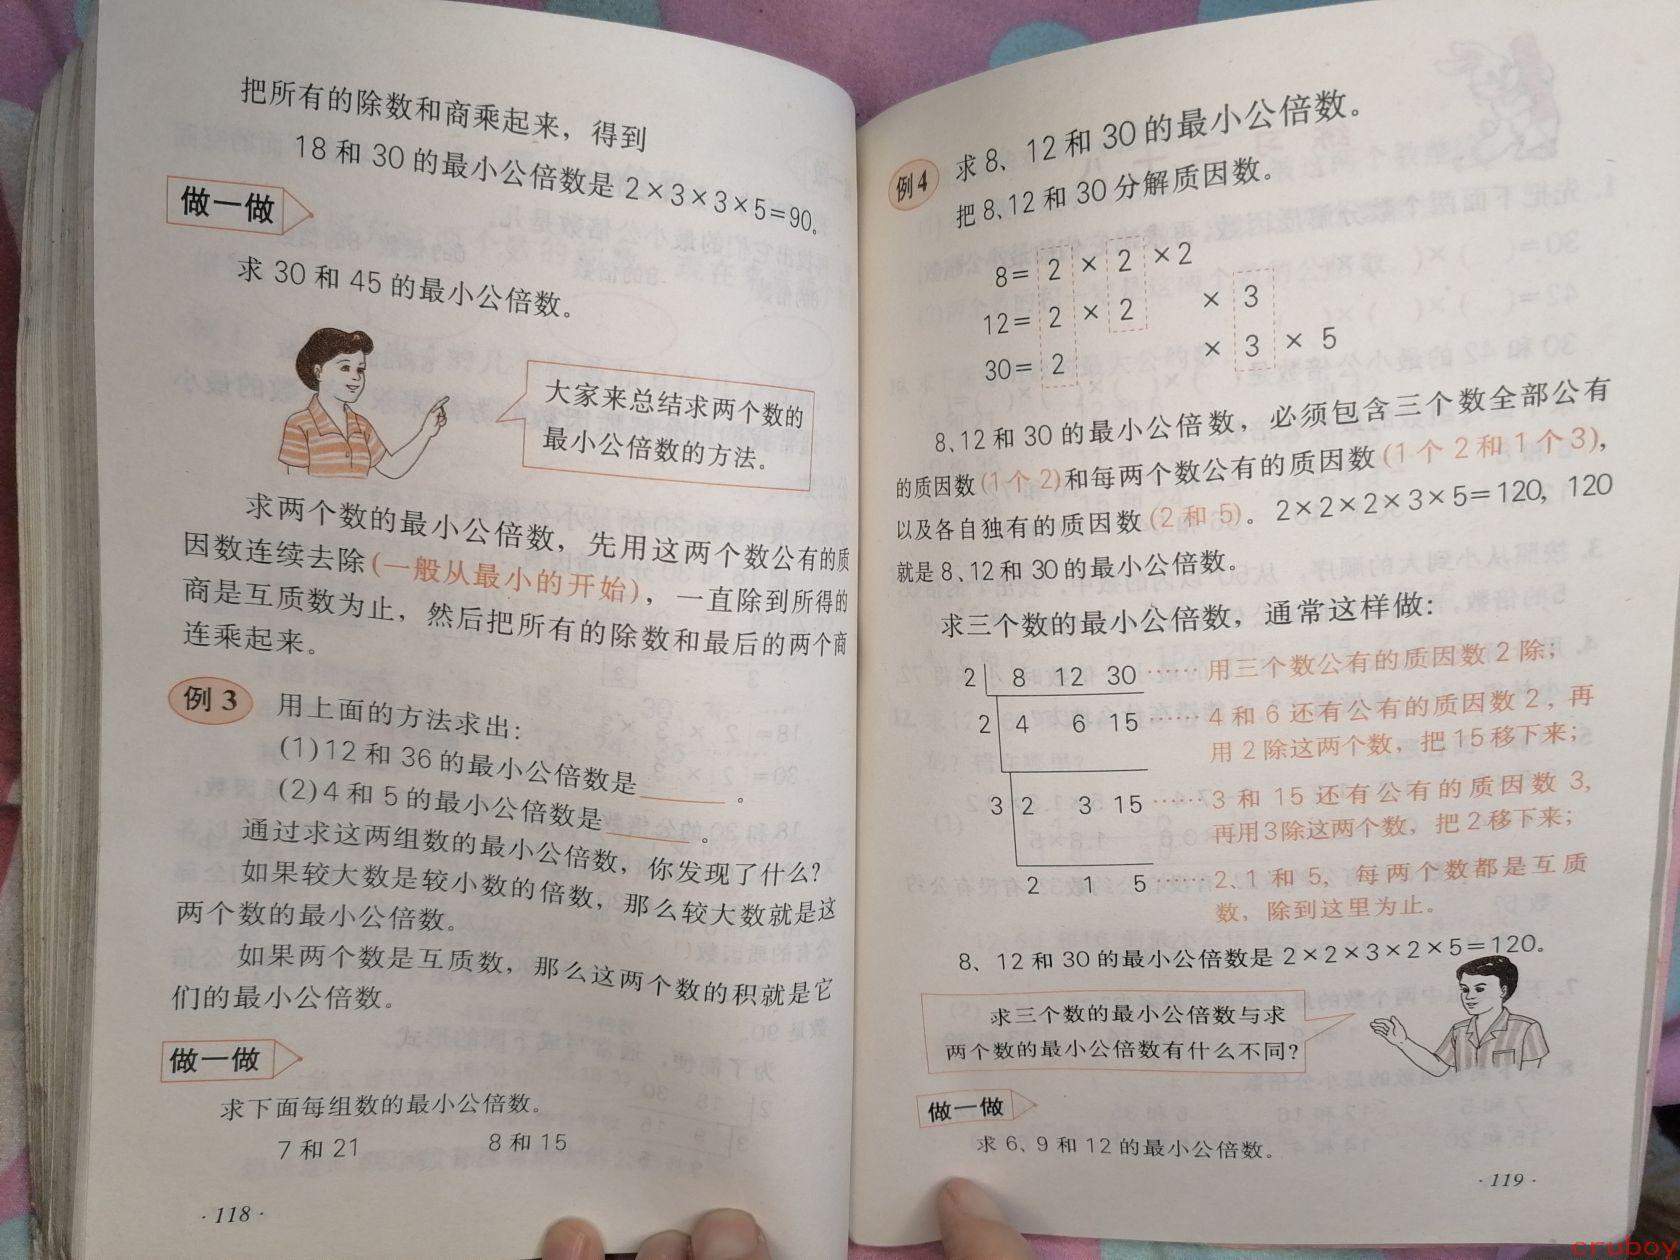 把所有的除数和商乘起来，得到
18 和 30 的最小公倍数是 2×3×3×5=90。
做一做
求 30 和 45 的最小公倍数。
大家来总结求两个数的
最小公倍数的方法。
求两个数的最小公倍数，先用这两个数公有的质
因数连续去除(一般从最小的开始)，一直除到所得的
商是互质数为止，然后把所有的除数和最后的两个商
连乘起来。
例 3 用上面的方法求出：
(1)12 和 36 的最小公倍数是______。
(2)4 和 5 的最小公倍数是______。
通过求这两组数的最小公倍数，你发现了什么？
如果较大数是较小数的倍数，那么较大数就是这
两个数的最小公倍数。
如果两个数是互质数，那么这两个数的积就是它
们的最小公倍数。
做一做
求下面每组数的最小公倍数。
7 和 21 8 和 15
·118·
例4 求 8、12 和 30 的最小公倍数。
把 8、12 和 30 分解质因数。
8= 2 × 2 ×2
12= 2 × 2 × 3
30= 2 × 3 × 5
8、12 和 30 的最小公倍数，必须包含三个数全部公有
的质因数(1 个 2)和每两个数公有的质因数(1 个 2 和 1 个 3)，
以及各自独有的质因数(2 和 5)。2×2×2×3×5=120，120
就是 8、12 和 30 的最小公倍数。
求三个数的最小公倍数，通常这样做：
2 8 12 30 ……用三个数公有的质因数 2 除；
2 4 6 15 ……4 和 6 还有公有的质因数 2，再
用 2 除这两个数，把 15 移下来；
3 2 3 15 ……3 和 15 还有公有的质因数 3，
再用3除这两个数，把 2 移下来；
2 1 5 ……2、1 和 5，每两个数都是互质
数，除到这里为止。
8、12 和 30 的最小公倍数是 2×2×3×2×5=120。
求三个数的最小公倍数与求
两个数的最小公倍数有什么不同？
做一做
求 6、9 和 12 的最小公倍数。
·119·
cruboy